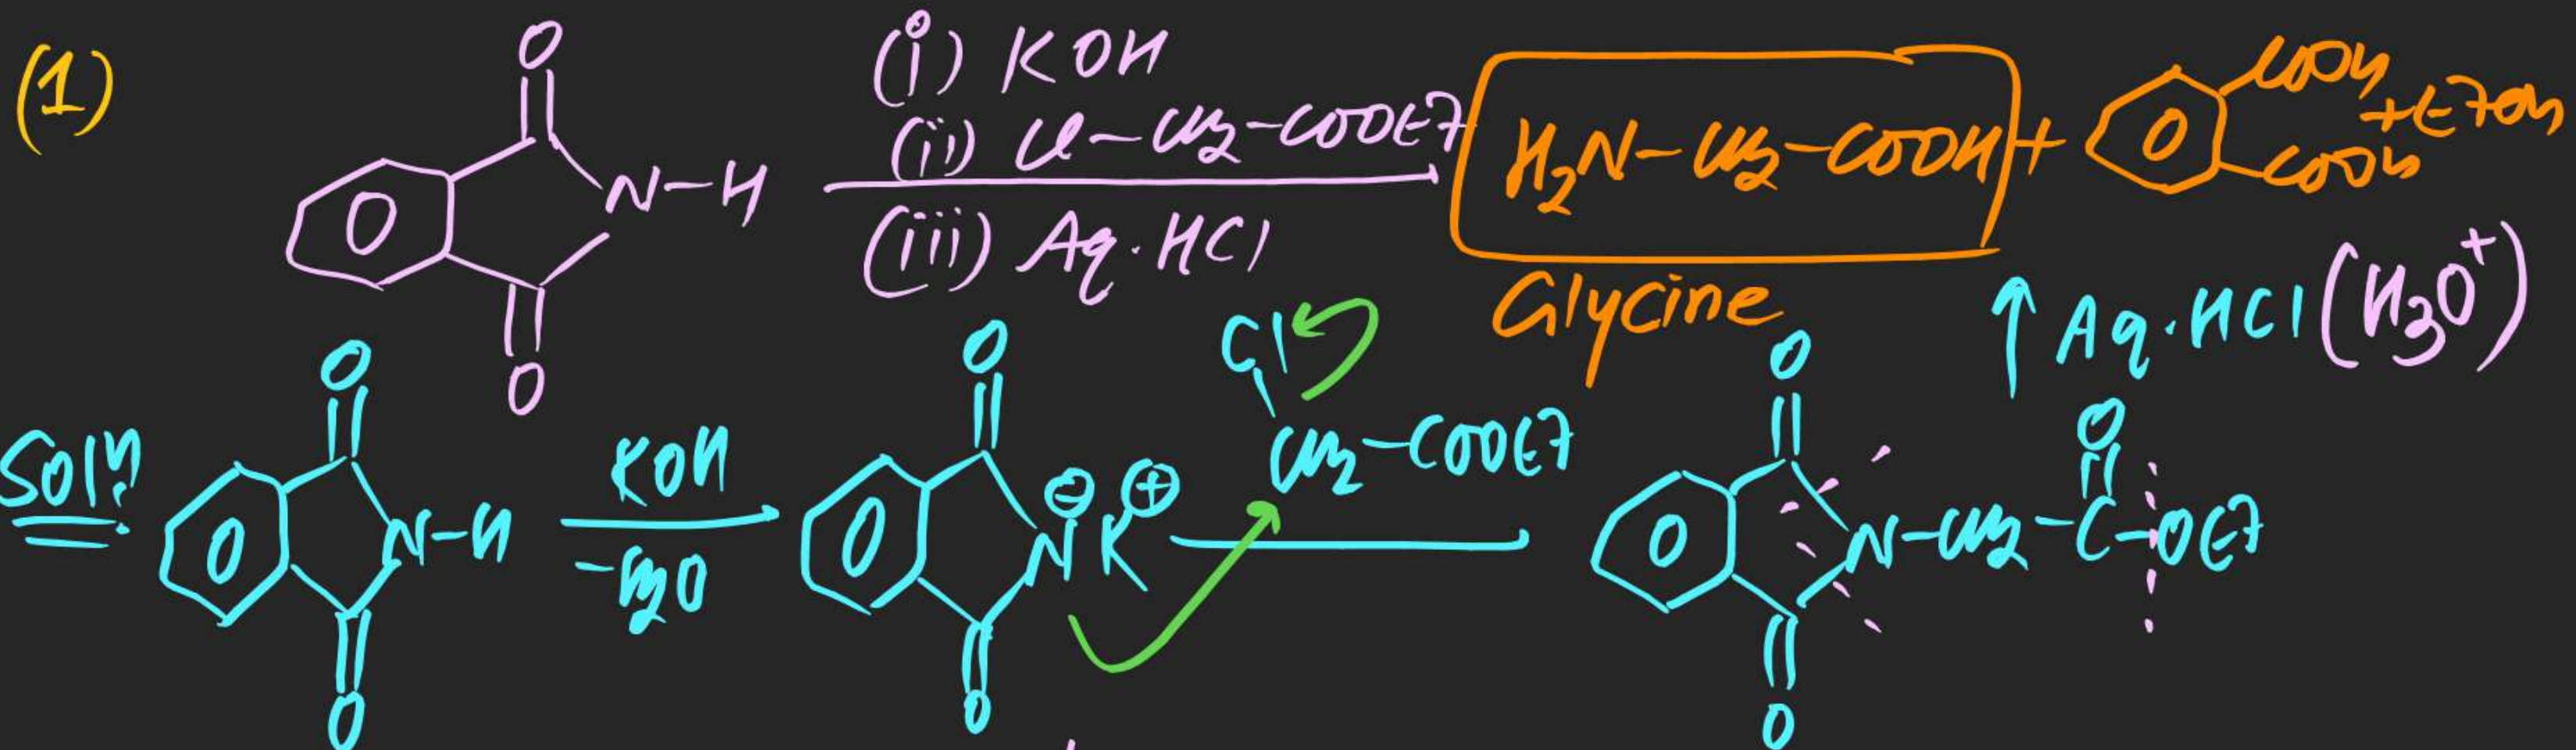 (1)
O
N-H
O
(i) KOH
(ii) Cl-CH2-COOEt
(iii) Aq. HCl
H2N-CH2-COOH + COOH
COOH
+EtOH
Glycine
Aq. HCl (H3O+)
Soln:
O
N-H
O
KOH
-H2O
O
N⊖ K⊕
O
Cl
CH2-COOEt
O
N-CH2-C-OEt
O
O